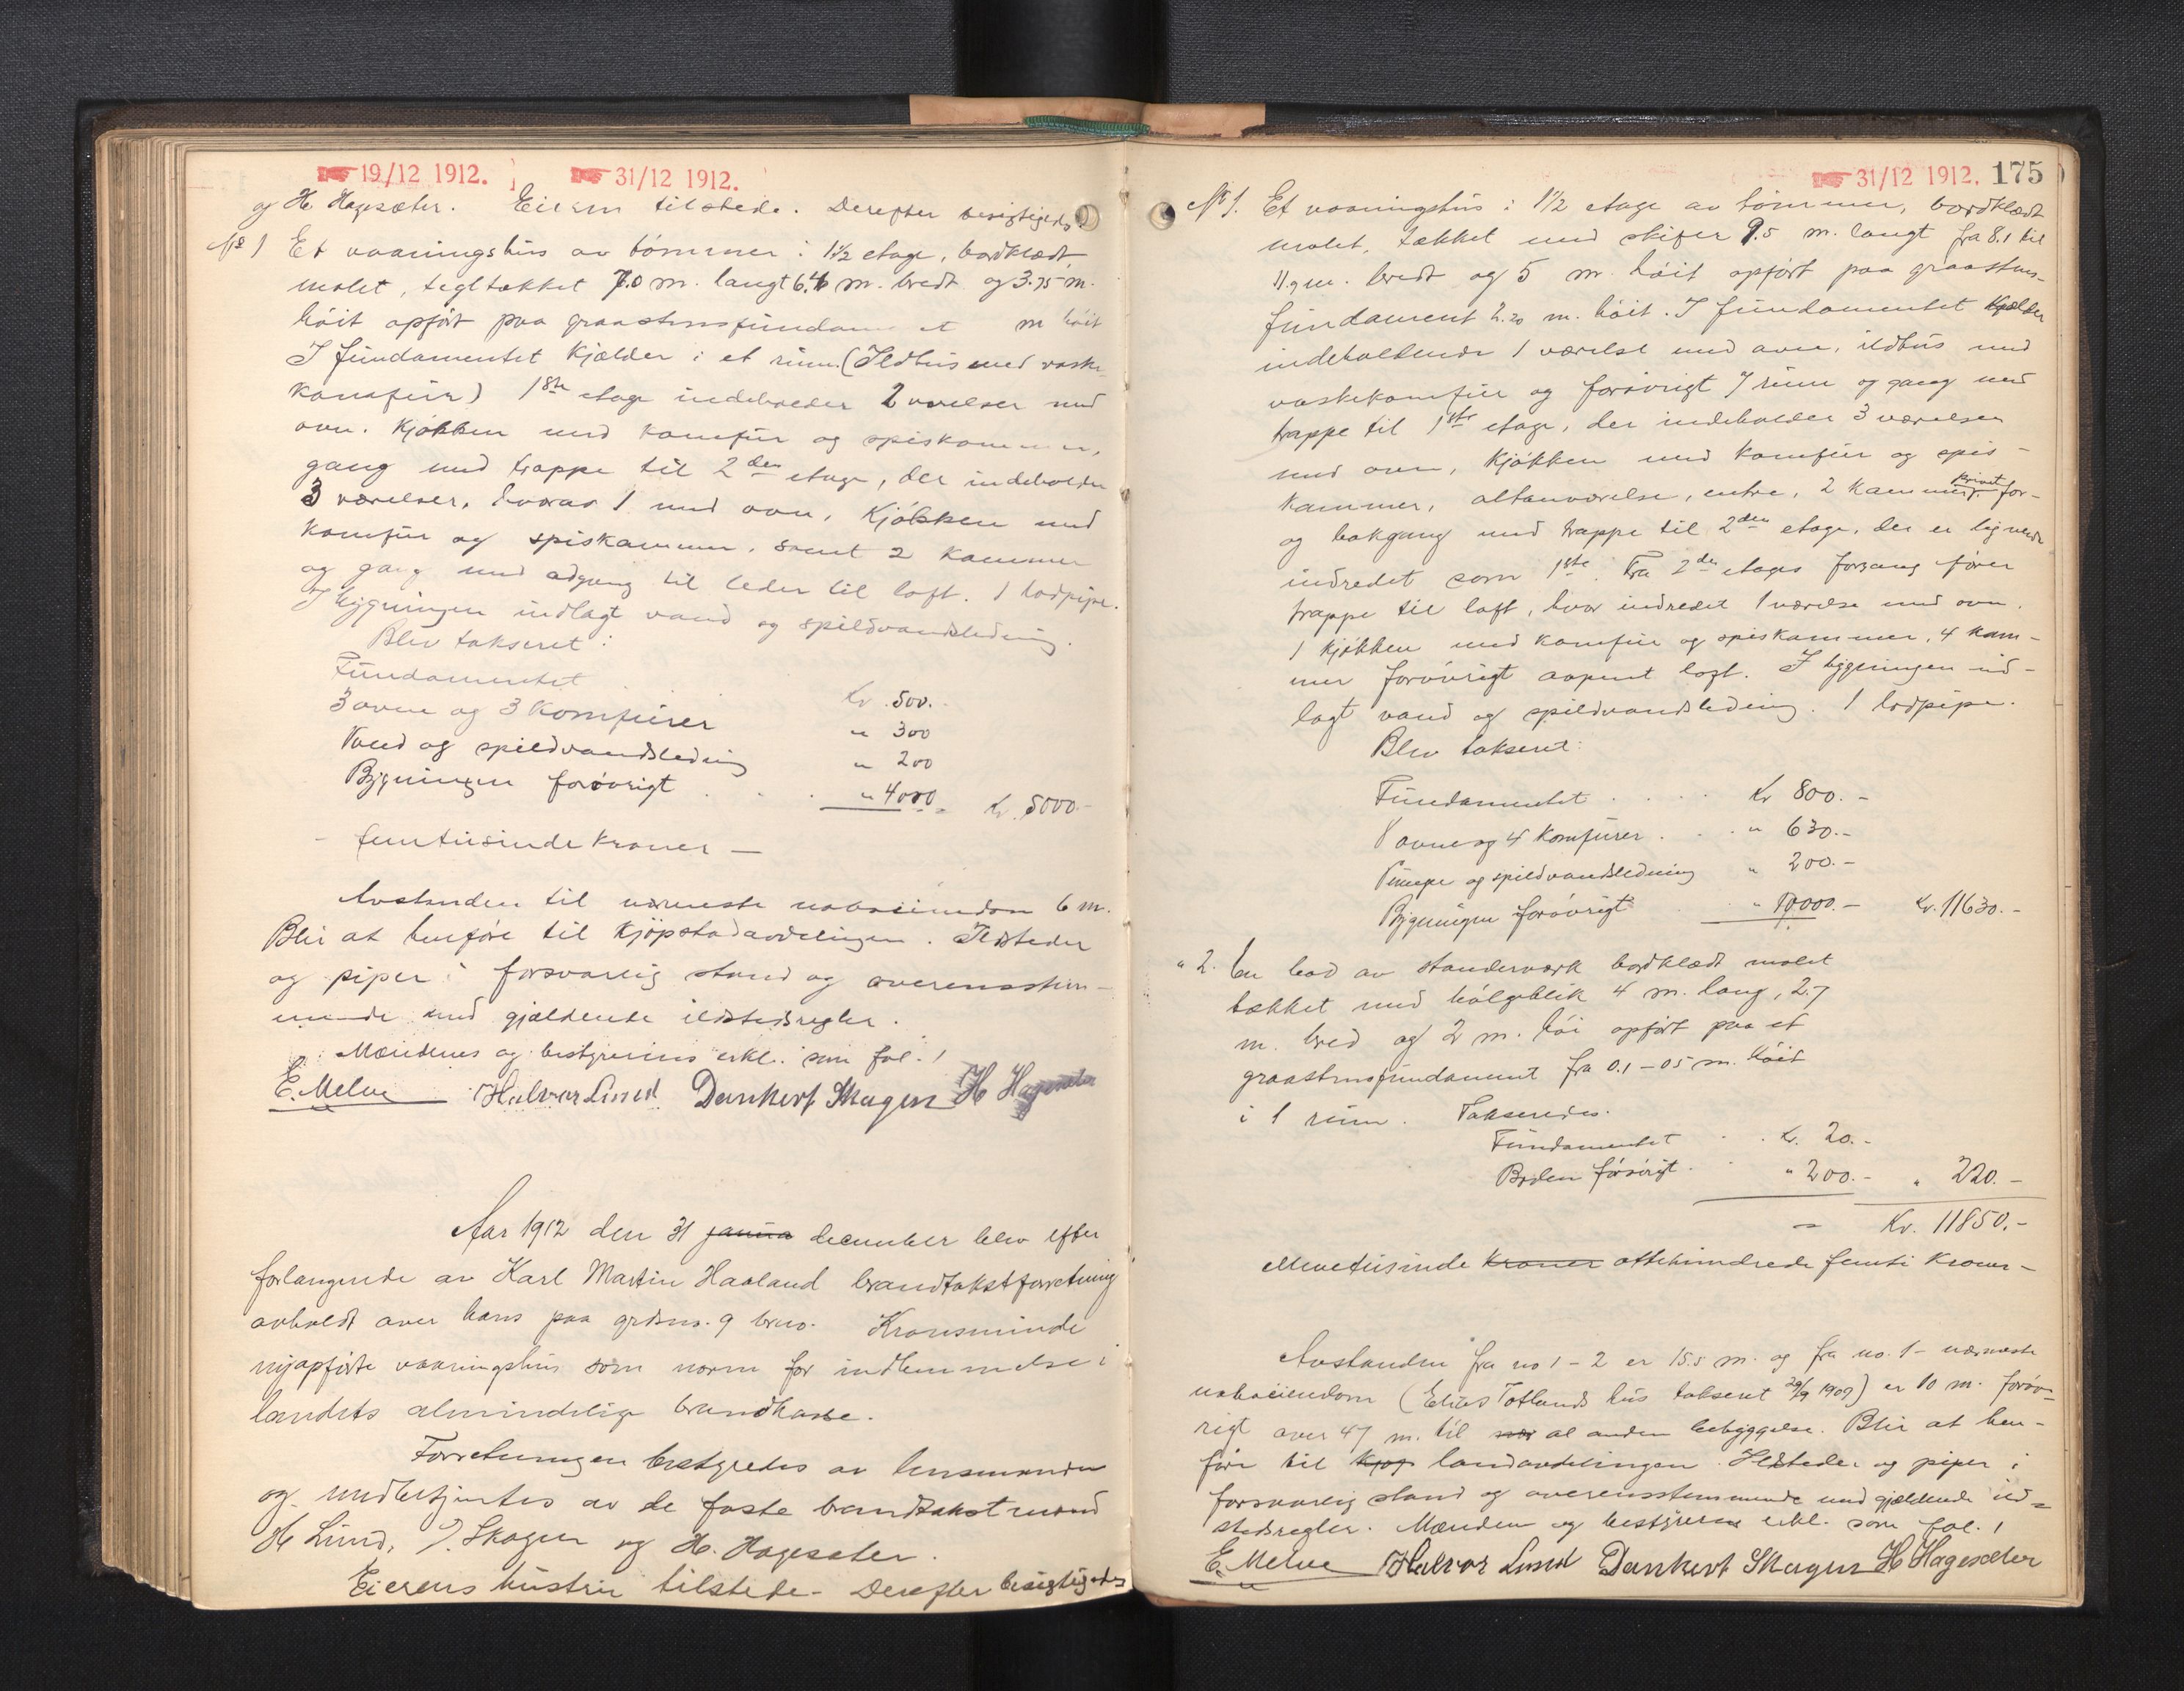 19/12 1912. 31/12 1912.
og H. Hagesæter. Eieren tilstede. Derefter besigtigedes
No 1 Et vaaningshus av tømmer i 1 1/2 etage, bordklædt,
malet, tegltækket 7.0 m. langt 6.4 m. bredt og 3.75 m.
høit opført paa graastensfundament m høit
I fundamentet kjælder i et rum. (Ildhus med vaske-
komfür) 1ste etage indeholder 2 værelser med
ovn. Kjøkken med komfür og spiskammer,
gang med trappe til 2den etage, der indeholder
3 værelser, hvorav 1 med ovn, kjøkken med
komfür og spiskammer, samt 2 kammer
og gang med adgang til leder til loft. 1 lodpipe.
I bygningen indlagt vand og spildvandsledning.
Blev takseret:
Fundamentet Kr. 500.
3 ovne og 3 komfürer " 300
Vand og spildvandsledning " 200
Bygningen forøvrigt . . . " 4000 = Kr. 5000.-
- femtusinde kroner -
Avstanden til nærmeste naboeiendom 6 m.
Blir at henføre til kjøpstadavdelingen. Ildsteder
og piper i forsvarlig stand og overensstem-
mende med gjældende ildstedsregler.
Mændenes og bestyrerens erkl. som fol. 1
E. Melve Halvor Lund Dankert Skagen H Hagesæter
Aar 1912 den 31 janua december blev efter
forlangende av Karl Martin Haaland brandtakstforretning
avholdt over hans paa grdsno. 9 brno. Kronsminde
nyopførte vaaningshus som norm for indlemmelse i
landets almindelige brandkasse.
Forretningen bestyredes av lensmanden
og underskjæntes av de faste brandtakstmænd
H Lund, D. Skagen og H. Hagesæter.
Eierens hustru tilstede. Derefter besigtigedes
31/12 1912. 175
No 1. Et vaaningshus i 1 1/2 etage av tømmer, bordklædt
malet, tækket med skifer 9.5 m. langt fra 8.1 til
11.9 m. bredt og 5 m. høit opført paa graastens-
fundament 2.20 m. høit. I fundamentet kjælder
indeholdende 1 værelse med ovn, ildhus med
vaskekomfür og forøvrigt 7 rum og gang med
trappe til 1ste etage, der indeholder 3 værelser
med ovn, kjøkken med komfür og spis-
kammer, altanværelse, entre, 2 kammer, privet for-
og bakgang med trappe til 2den etage, der er lignende
indredet som 1ste. Fra 2den etages forgang fører
trappe til loft, hvor indredet 1 værelse med ovn.
1 kjøkken med komfür og spiskammer, 4 kam-
mer forøvrigt aapent loft. I bygningen ind-
lagt vand og spildvandsledning. 1 lodpipe.
Blev takseret:
Fundamentet . . . . Kr 800.-
8 ovne og 4 komfürer . . . " 630.-
Pumpe og spildvandsledning " 200.-
Bygningen forøvrigt " 10000.- Kr. 11630.-
" 2. En bod av standerværk bordklædt malet
tækket med bølgeblik 4 m. lang, 2.7
m. bred og 2 m. høi opført paa et
graastensfundament fra 0.1 - 05 m. høit
i 1 rum. Takseredes.
Fundamentet . . Kr. 20.-
Boden forøvrigt . . " 200.- " 220.-
= Kr. 11850.-
ellevetusinde kroner ottehundrede femti kroner -
Avstanden fra no 1 - 2 er 15.5 m. og fra no. 1 - nærmeste
naboeiendom (Elias Totlands hus takseret 29/9 1909) er 10 m. forøv-
rigt over 47 m. til nær al anden bebyggelse. Blir at hen-
føre til kjøp landavdelingen. Ildsteder og piper i
forsvarlig stand og overensstemmende med gjældende ild=
stedsregler. Mænden og bestyreren erkl. som fol. 1
E. Melve Halvor Lund Dankert Skagen H Hagesæter